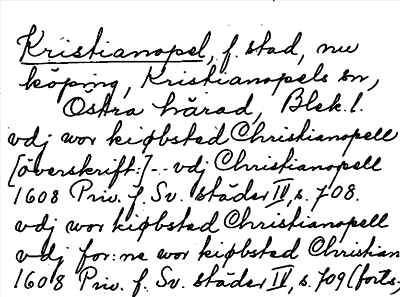 Kristianopel, f. stad, nu
köping, Kristianopels sn,
Östra härad, Blek. l.
vdj wor kiøbsted Christianopell
[överskrift:] -- vdj Christianopell
1608 Priv. f. Sv. städer IV, s. 708.
vdj wor kiøbsted Christianopell
vdj for:ne wor kiøbsted Christian
1608 Priv. f. Sv. städer IV, s. 709 (forts.